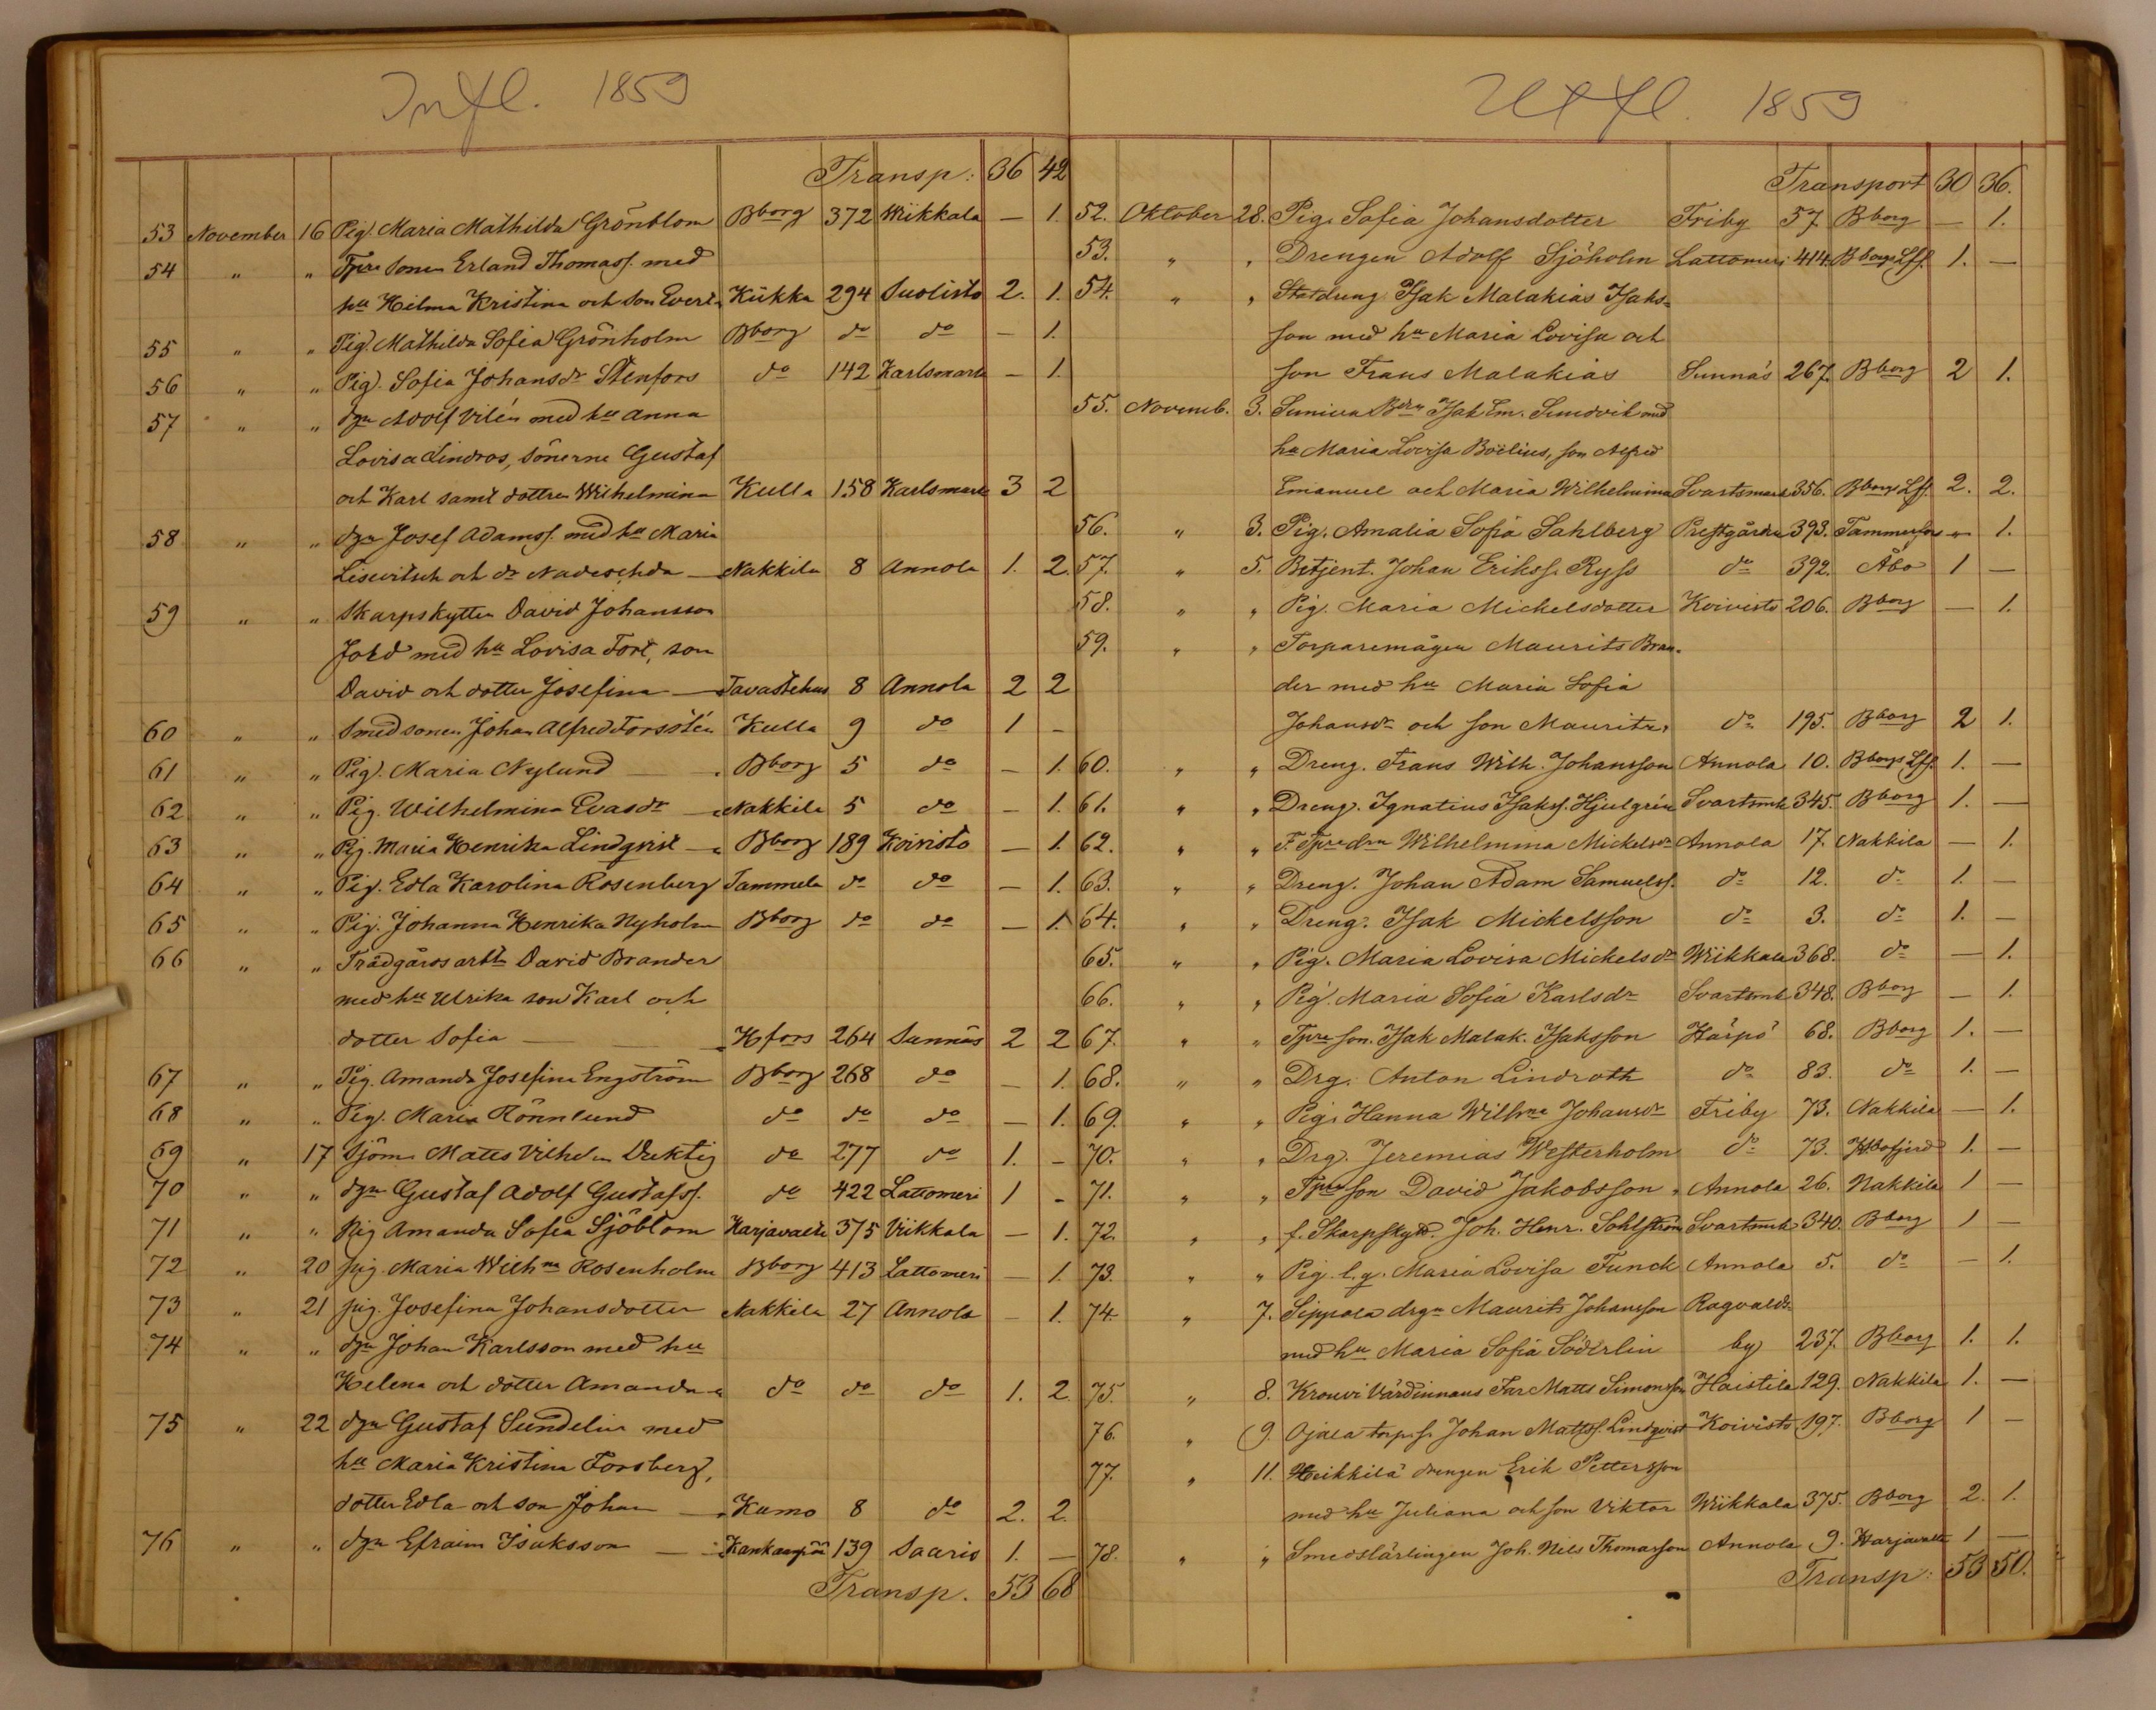 Infl. 1859
Transp: 36 42
53 November 16 Pig. Maria Mathilda Grönblom Bborg 372 Wiikkala — 1.
54 " " Tpre sonen Erland Thomass. med
hu Hilma Kristina och son Evert Kiikka 294 Suolisto 2. 1.
55 " " Pig. Mathilda Sofia Grönholm Bborg do do — 1.
56 " " Pig. Sofia Johansdr Stenfors do 142 Karlsmark — 1.
57 " " dgn Adolf Vilén med hu Anna
Lovisa Lindros, sönerne Gustaf
och Karl samt dottren Wilhelmina Kulla 158 Karlsmark 3 2
58 " " dgn Josef Adamss. med hu Maria
Lisewitsch och dr Nadeschda — Nakkila 8 Annola 1. 2.
59 " " Skarpskytten David Johansson
Jord med hu Lovisa Fort, son
David och dotter Josefina — Tavastehus 8 Annola 2 2
60 " " Smedsonen Johan Alfred Forsstén Kulla 9 do 1 —
61 " " Pig. Maria Nylund — Bborg 5 do — 1.
62 " " Pig. Wilhelmina Evasdr — Nakkila 5 do — 1.
63 " " Pig. Maria Henrika Lindqvist — Bborg 189 Koivisto — 1.
64 " " Pig. Edla Karolina Rosenberg Tammela do do — 1.
65 " " Pig. Johanna Henrika Nyholm Bborg do do — 1.
66 " " Trädgårdsarbtn David Brander
med hu Ulrika son Karl och
dotter Sofia — — Hfors 264 Sunnäs 2 2
67 " " Pig. Amanda Josefina Engström Bborg 268 do — 1.
68 " " Pig. Maria Rönnlund do do do — 1.
69 " 17 Sjöm. Matts Vilhelm Duktig do 277 do 1. —
70 " " dgn Gustaf Adolf Gustafss. do 422 Lattomeri 1 —
71 " " Pig Amanda Sofia Sjöblom Harjavalta 375 Viikkala — 1.
72 " 20 pig. Maria Wilhna Rosenholm Bborg 413 Lattomeri — 1.
73 " 21 pig. Josefina Johansdotter Nakkila 27 Annola — 1.
74 " " dgn Johan Karlsson med hu
Helena och dotter Amanda do do do 1. 2
75 " 22 dgn Gustaf Sundelin med
hu Maria Kristina Forsberg,
dotter Edla och son Johan — Kumo 8 do 2. 2.
76 " " dgn Efraim Isaksson — Kankaanpää 139 Saaris 1. —
Transp. 53 68
Utfl. 1859
Transport 30 36.
52. Oktober 28. Pig. Sofia Johansdotter Friby 57. Bborg — 1.
53. " " Drengen Adolf Sjöholm Lattomeri 414. Bborgs Lff. 1. —
54. " " Statdreng Isak Malakias Isaks-
son med hu Maria Lovisa och
son Frans Malakias Sunnäs 267. Bborg 2 1.
55. Novemb. 3. Isak Em. Sundvik med
hu Maria Lovisa Boëlius, son Alfred
Emanuel och Maria Wilhelmina Svartsmark 356. Bborgs Lff. 2. 2.
56. " 3. Pig. Amalia Sofia Sahlberg Prestgården 393. Tammerfors — 1.
57. " 5. Betjent. Johan Erikss. Ryss do 392. Åbo 1 —
58. " " Pig. Maria Mickelsdotter Koivisto 206. Bborg — 1.
59. " " Torparemågen Maurits Bran-
der med hu Maria Sofia
Johansdr och son Mauritz. do 195. Bborg 2 1.
60. " " Dreng. Frans Wilh. Johansson Annola 10. Bborgs Lff. 1. —
61. " " Dreng. Ignatius Isakss. Hjulgrén Svartsmk 345. Bborg 1. —
62. " " F. Tpredrn Wilhelmina Mickelsdr Annola 17. Nakkila — 1.
63. " " Dreng. Johan Adam Samuelss. do 12. do 1. —
64. " " Dreng. Isak Mickelsson do 3. do 1. —
65. " " Pig. Maria Lovisa Mickelsdr Wiikkala 368. do — 1.
66. " " Pig. Maria Sofia Karlsdr Svartsmk 348. Bborg — 1.
67. " " Tpre son. Isak Malak. Isaksson Härpö 68. Bborg 1. —
68. " " Drg. Anton Lindroth do 83. do 1. —
69. " " Pig. Hanna Wilhna Johansdr Friby 73. Nakkila — 1.
70. " " Drg. Jeremias Westerholm do 73. 1. —
71. " " Tpre son David Jakobsson Annola 26. Nakkila 1 —
72. " " f. Skarpskytt. Joh. Henr. Sohlström Svartsmk 340. Bborg 1 —
73. " " Pig. l.q. Maria Lovisa Funck Annola 5. do — 1.
74. " 7. Sippola drgn Maurits Johansson Ragvalds-
med hu Maria Sofia Söderlin by 237. Bborg 1. 1.
75. " 8. Krouvi Värdinnans Far Matts Simonsson Haistila 129. Nakkila 1. —
76. " 9. Ojala torp.s. Johan Mattss. Lindqvist Koivisto 197. Bborg 1 —
77. " 11. Heikkilä drengen Erik Pettersson
med hu Juliana och son Viktor Wiikkala 375. Bborg 2. 1.
78. " " Smedslärlingen Joh. Nils Thomasson Annola 9. Harjavalta 1 —
Transp: 53 50.